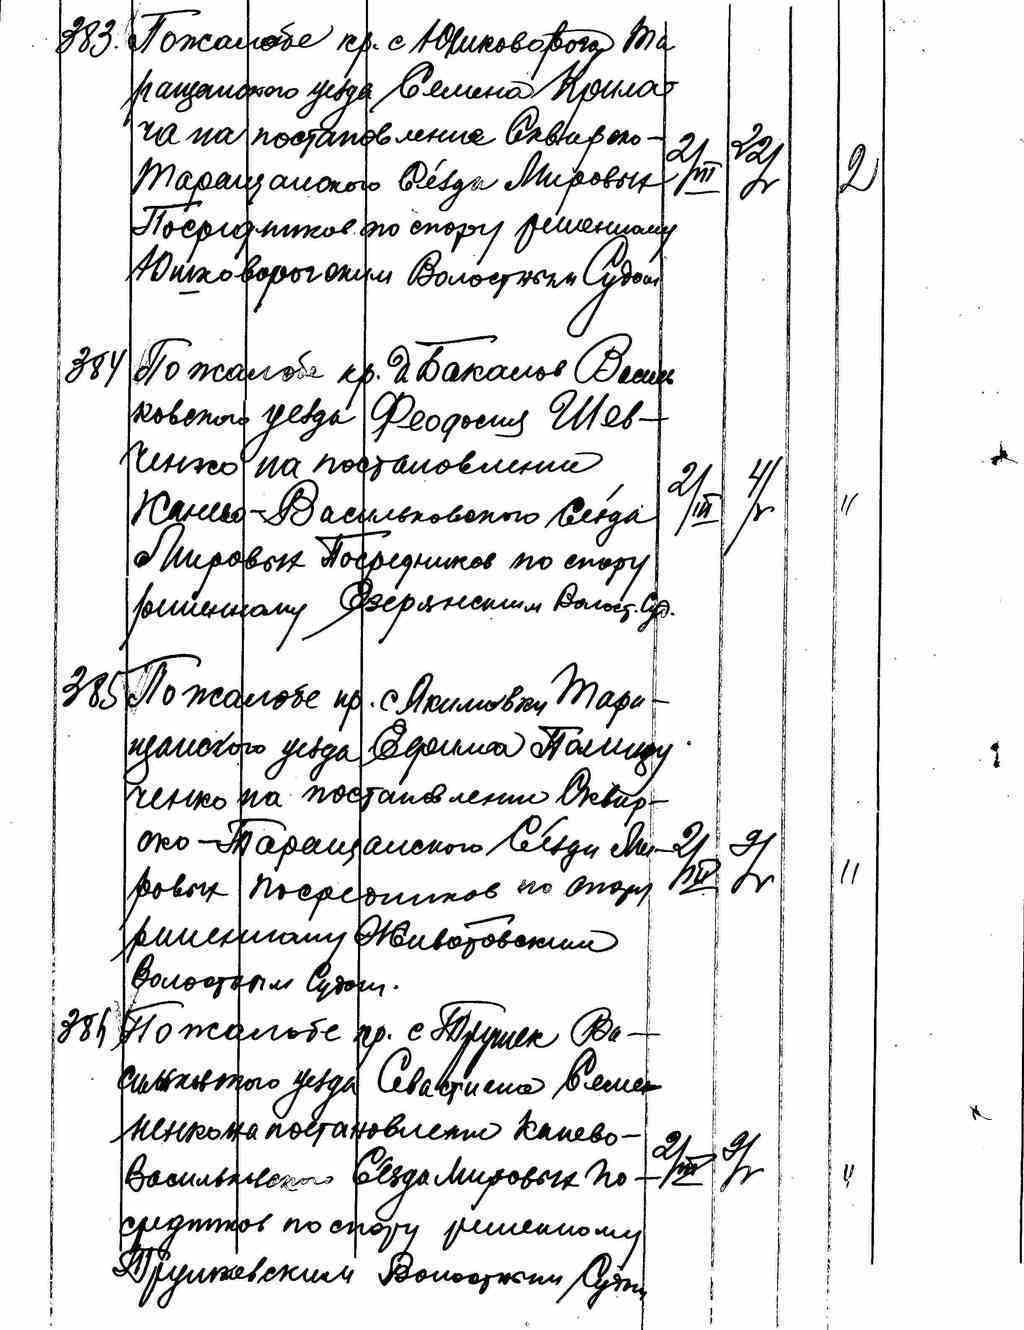 383. По жалобе кр. с Юшковорога Та
ращанского уезда Семена
ча на постановление Сквирско-
Таращанского Съезда Мировых 2/III 22/V 2
Посредников по спору решенному
Юшковорогским Волостным Судом
384 По жалобе кр. д Бакалов Василь
ковского уезда Феодосия Шев-
ченко на постановление
Канево-Васильковского Съезда 2/III 4/V "
Мировых Посредников по спору
решенному Озерянским Волост. Суд.
385 По жалобе кр. с Якимовки Тара-
щанского уезда Ефима
ченко на постановление Сквир-
ско-Таращанского Съезда Ми- 2/III 9/V "
ровых посредников по спору
решенному Животовским
Волостным Судом.
386 По жалобе кр. с Трушек Ва-
сильковского уезда Севастиана Семе
ненко на постановление Канево-
Васильковского Съезда Мировых по- 2/III 9/V "
средников по спору решенному
Трушковским Волостным Судом